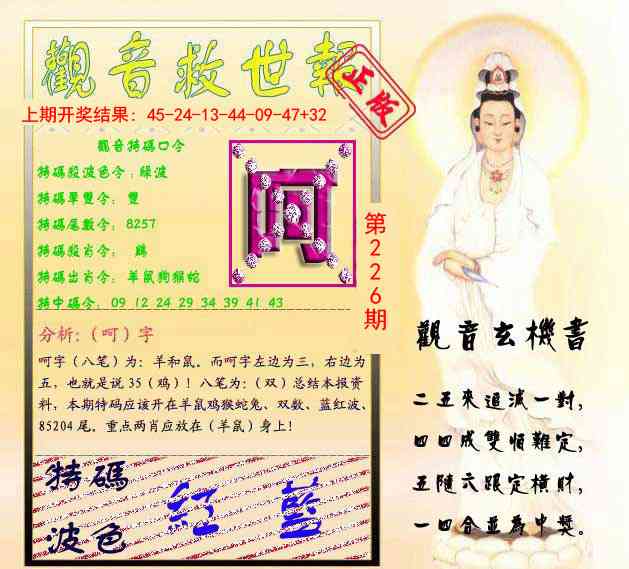 觀音救世報
正版
上期开奖结果：45-24-13-44-09-47+32
觀音特碼口令
特碼殺波色令：綠波
特碼單雙令： 雙
特碼尾數令： 8257
特碼殺肖令： 鷄
特碼出肖令： 羊鼠狗猴蛇
特中碼令： 09 12 24 29 34 39 41 43
呵
第226期
分析：（呵）字
呵字（八笔）为：羊和鼠。而呵字左边为三，右边为
五，也就是说 35（鸡）！八笔为：（双）总结本报资
料，本期特码应该开在羊鼠鸡猴蛇兔、双数、蓝红波、
85204 尾。重点两肖应放在（羊鼠）身上！
特碼
波色
紅 藍
觀音玄機書
二五來追減一對，
四四成雙恒難定，
五隨六跟定橫財，
一四合並為中獎。